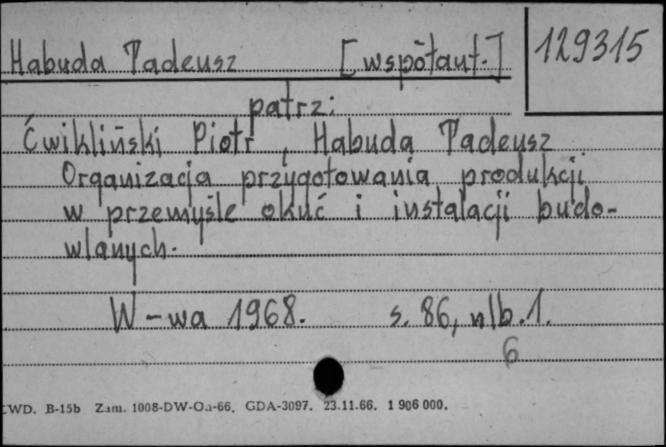 Habuda Tadeusz [współaut.] 129315
patrz:
Ćwikliński Piotr, Habuda Tadeusz
Organizacja przygotowania produkcji
w przemyśle okuć i instalacji budo-
wlanych.
W-wa 1968. s. 86, nlb. 1.
6
WD. B-15b Zam. 1008-DW-Oa-66. GDA-3097. 23.11.66. 1 906 000.